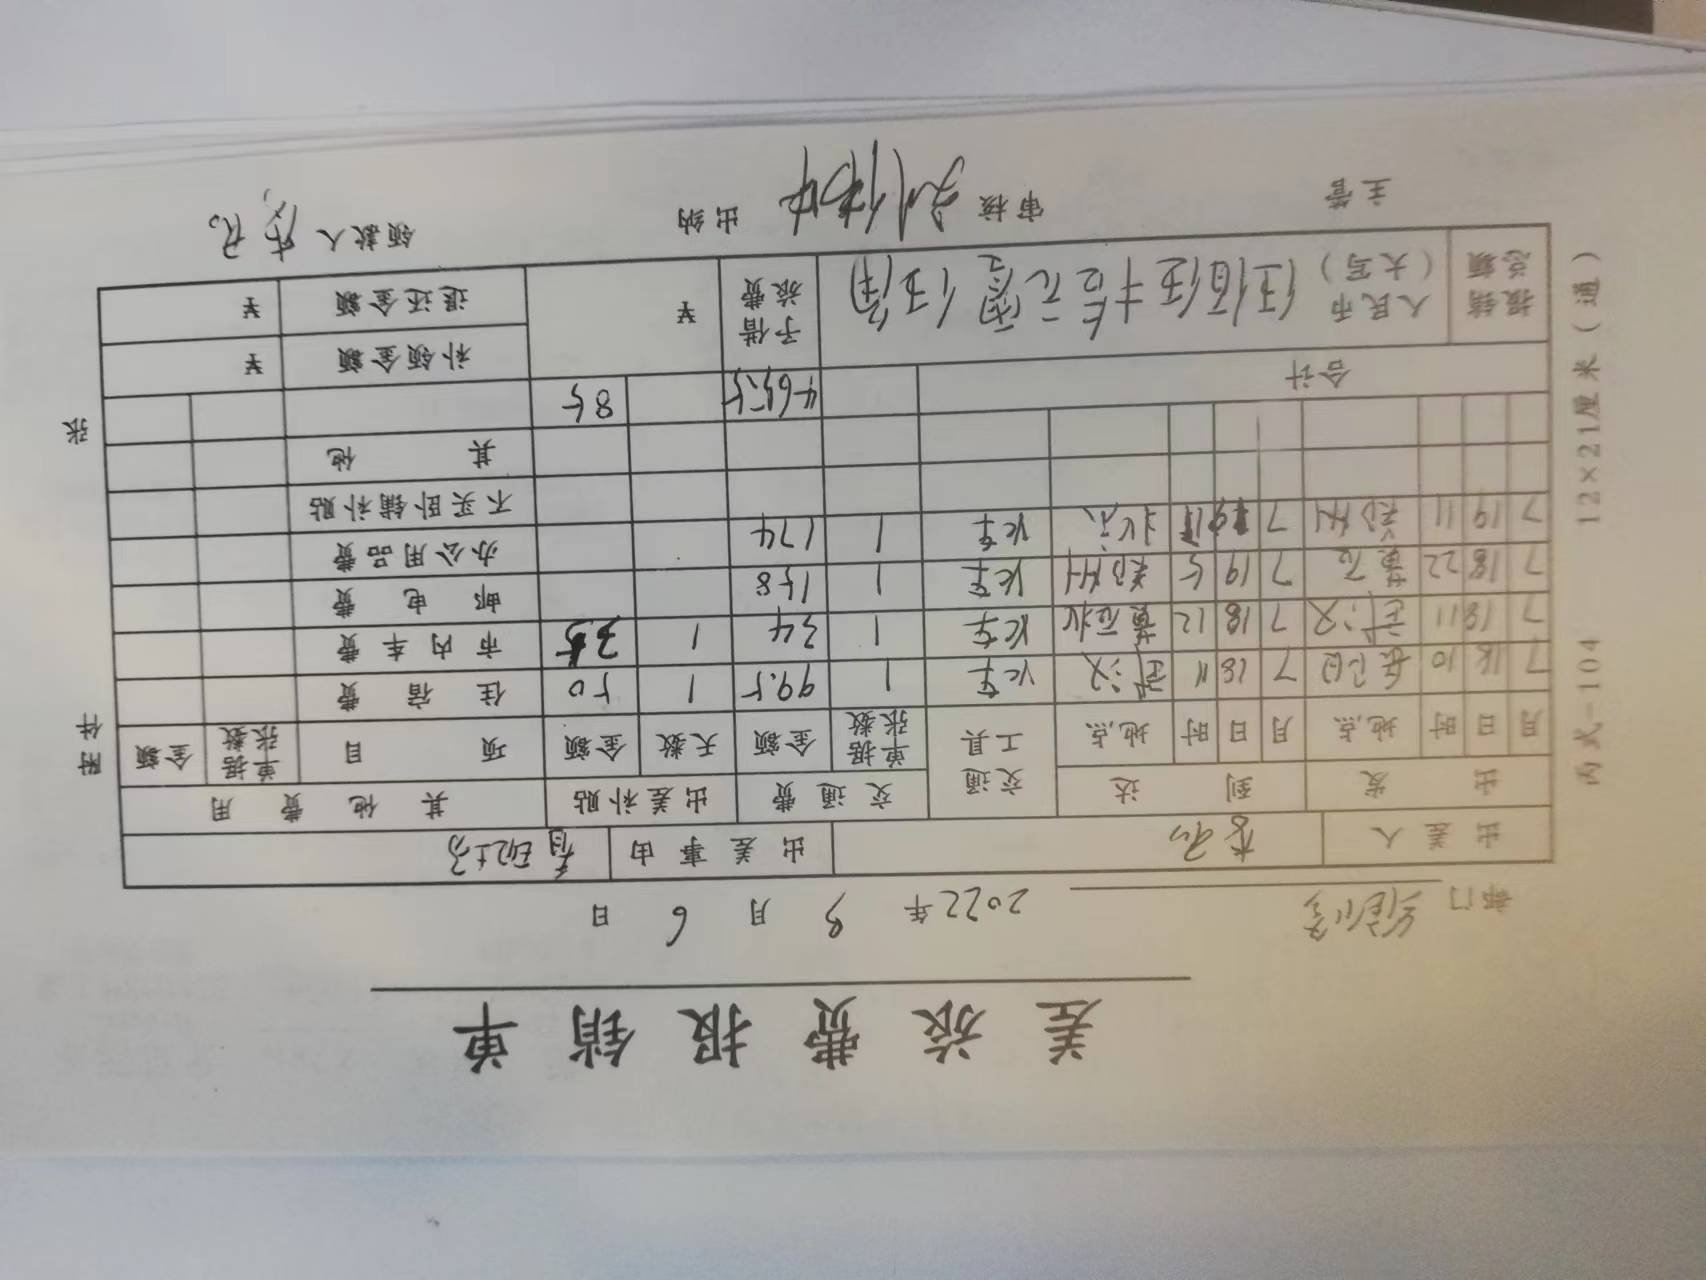 差旅费报销单
部门 2022年 9月 6日
出差人 李 出差事由
出发 到达 交通工具 交通费 出差补贴 其他费用
月 日 时 地点 月 日 时 地点 单据张数 金额 天数 金额 项目 单据张数 金额
7 18 10 7 18 11 武汉 火车 1 99.5 1 50 住宿费
7 18 11 武汉 7 18 12 黄石北 火车 1 34 1 35 市内车费
7 18 22 黄石 7 19 5 郑州 火车 1 158 邮电费
7 19 11 郑州 7 北京 火车 1 174 办公用品费
不买卧铺补贴
其他
合计 465.5 85
报销总额 人民币(大写) 伍佰伍十 元零 伍角 予借旅费 ¥ 补领金额 ¥
退还金额 ¥
主管 审核 出纳 领款人
附件 张
丙式-104 12×21厘米(通)